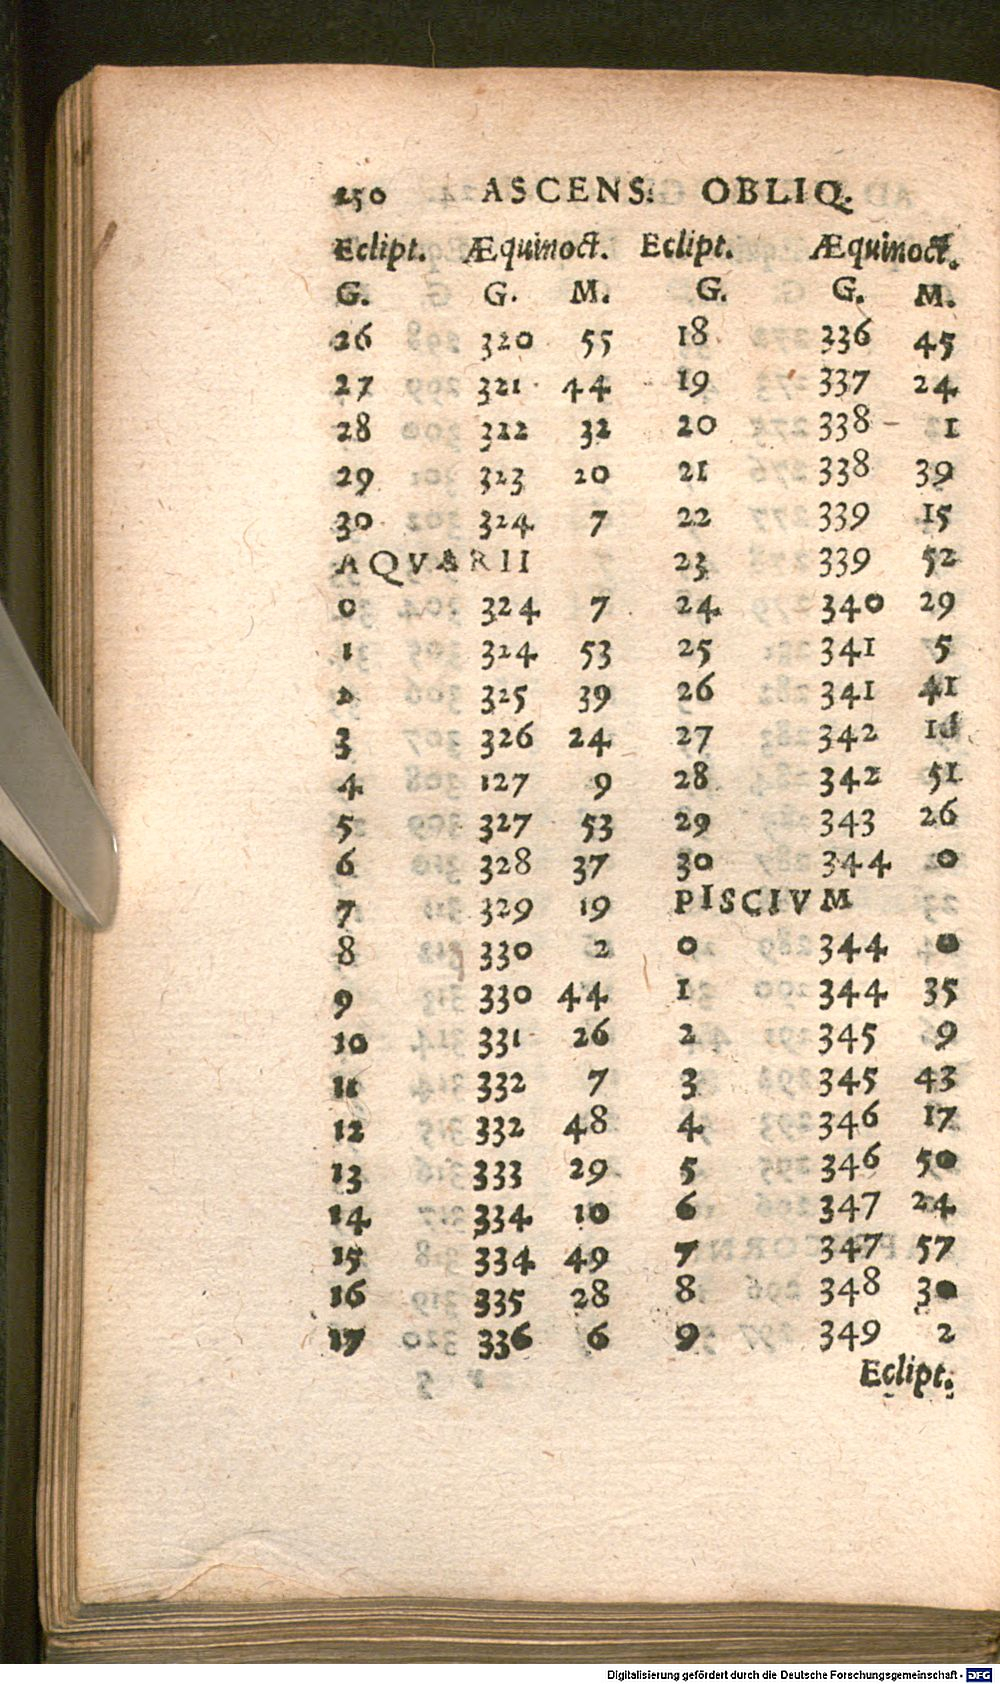 250 ASCENS. OBLIQ.
Eclipt. Æquinoct. Eclipt. Æquinoct.
G. G. M. G. G. M.
26 320 55 18 336 45
27 321 44 19 337 24
28 322 32 20 338 1
29 323 20 21 338 39
30 324 7 22 339 15
AQVARII 23 339 52
0 324 7 24 340 29
1 324 53 25 341 5
2 325 39 26 341 41
3 326 24 27 342 16
4 127 9 28 342 51
5 327 53 29 343 26
6 328 37 30 344 0
7 329 19 PISCIVM
8 330 2 0 344 0
9 330 44 1 344 35
10 331 26 2 345 9
11 332 7 3 345 43
12 332 48 4 346 17
13 333 29 5 346 50
14 334 10 6 347 24
15 334 49 7 347 57
16 335 28 8 348 30
17 336 6 9 349 2
Eclipt.
Digitalisierung gefördert durch die Deutsche Forschungsgemeinschaft - DFG